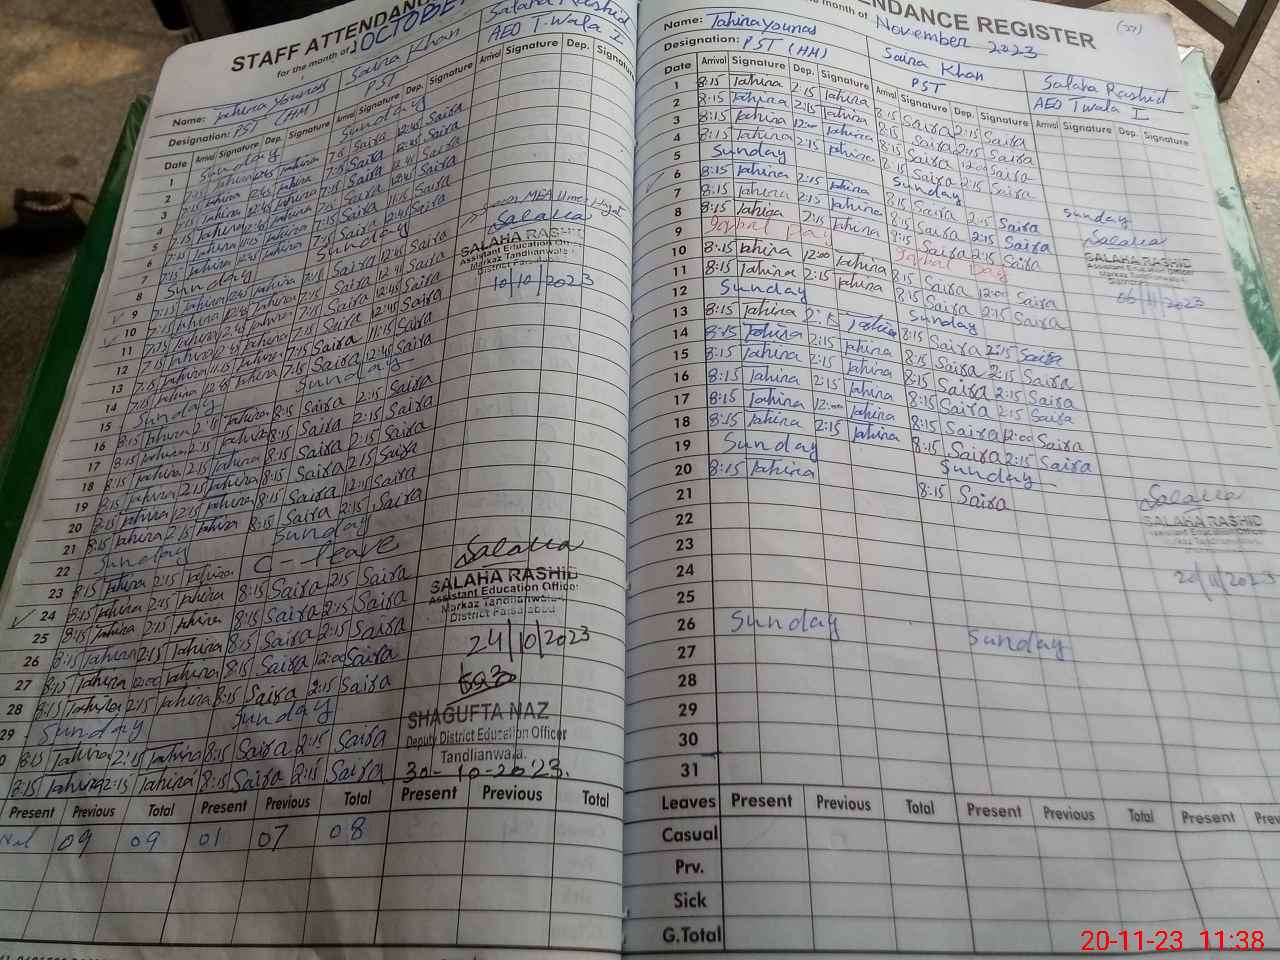 STAFF ATTENDANC
for the month of OCTOBER
Name: Tahira younas Saira Khan Salaha Rashid
Designation: PST (HM) PST AEO T-Wala I
Date Arrival Signature Dep. Signature Arrival Signature Dep. Signature Arrival Signature Dep. Signature
1 Sunday Sunday
2 7:15 Tahira 12:45 Tahira 7:15 Saira 12:45 Saira
3 7:15 Tahira 12:45 Tahira 7:15 Saira 12:45 Saira
4 7:15 Tahira 12:45 Tahira 7:15 Saira 12:45 Saira
5 7:15 Tahira 12:45 Tahira 7:15 Saira 12:45 Saira
6 7:15 Tahira 11:15 Tahira 7:15 Saira 11:15 Saira
7 7:15 Tahira 12:45 Tahira 7:15 Saira 12:45 Saira
8 Sunday Sunday
9 7:15 Tahira 12:45 Tahira 7:15 Saira 12:45 Saira
10 7:15 Tahira 12:45 Tahira 7:15 Saira 12:45 Saira
11 7:15 Tahira 12:45 Tahira 7:15 Saira 12:45 Saira
12 7:15 Tahira 12:45 Tahira 7:15 Saira 12:45 Saira
13 7:15 Tahira 11:15 Tahira 7:15 Saira 11:15 Saira
14 7:15 Tahira 12:45 Tahira 7:15 Saira 12:45 Saira
15 Sunday Sunday
16 8:15 Tahira 2:15 Tahira 8:15 Saira 2:15 Saira
17 8:15 Tahira 2:15 Tahira 8:15 Saira 2:15 Saira
18 8:15 Tahira 2:15 Tahira 8:15 Saira 2:15 Saira
19 8:15 Tahira 2:15 Tahira 8:15 Saira 2:15 Saira
20 8:15 Tahira 12:15 Tahira 8:15 Saira 12:15 Saira
21 8:15 Tahira 2:15 Tahira 8:15 Saira 2:15 Saira
22 Sunday Sunday
23 8:15 Tahira 2:15 Tahira C-leave
24 8:15 Tahira 2:15 Tahira 8:15 Saira 2:15 Saira
25 8:15 Tahira 2:15 Tahira 8:15 Saira 2:15 Saira
26 8:15 Tahira 2:15 Tahira 8:15 Saira 2:15 Saira
27 8:15 Tahira 12:00 Tahira 8:15 Saira 12:00 Saira
28 8:15 Tahira 2:15 Tahira 8:15 Saira 2:15 Saira
29 Sunday Sunday
0 8:15 Tahira 2:15 Tahira 8:15 Saira 2:15 Saira
8:15 Tahira 2:15 Tahira 8:15 Saira 2:15 Saira
Present Previous Total Present Previous Total Present Previous Total
Nil 09 09 01 07 08
Salaha
SALAHA RASHID
Assistant Education Officer
Markaz Tandlianwala-I
District Faisalabad
10/10/2023
Salaha
SALAHA RASHID
Assistant Education Officer
Markaz Tandlianwala-I
District Faisalabad
24/10/2023
SHAGUFTA NAZ
Deputy District Education Officer
Tandlianwala.
30-10-2023.
ENDANCE REGISTER (57)
the month of November 2023
Name: Tahira younas Saira Khan Salaha Rashid
Designation: PST (HM) PST AEO Twala I
Date Arrival Signature Dep. Signature Arrival Signature Dep. Signature Arrival Signature Dep. Signature
1 8:15 Tahira 2:15 Tahira 8:15 Saira 2:15 Saira
2 8:15 Tahira 2:15 Tahira 8:15 Saira 2:15 Saira
3 8:15 Tahira 12:00 Tahira 8:15 Saira 12:00 Saira
4 8:15 Tahira 2:15 Tahira 8:15 Saira 2:15 Saira
5 Sunday Sunday Sunday
6 8:15 Tahira 2:15 Tahira 8:15 Saira 2:15 Saira
7 8:15 Tahira 2:15 Tahira 8:15 Saira 2:15 Saira
8 8:15 Tahira 2:15 Tahira 8:15 Saira 2:15 Saira
9 Iqbal Day Iqbal Day
10 8:15 Tahira 12:00 Tahira 8:15 Saira 12:00 Saira
11 8:15 Tahira 2:15 Tahira 8:15 Saira 2:15 Saira
12 Sunday Sunday
13 8:15 Tahira 2:15 Tahira 8:15 Saira 2:15 Saira
14 8:15 Tahira 2:15 Tahira 8:15 Saira 2:15 Saira
15 8:15 Tahira 2:15 Tahira 8:15 Saira 2:15 Saira
16 8:15 Tahira 2:15 Tahira 8:15 Saira 2:15 Saira
17 8:15 Tahira 12:00 Tahira 8:15 Saira 12:00 Saira
18 8:15 Tahira 2:15 Tahira 8:15 Saira 2:15 Saira
19 Sunday Sunday
20 8:15 Tahira 8:15 Saira
21
22
23
24
25
26 Sunday Sunday
27
28
29
30
31
Leaves Present Previous Total Present Previous Total Present Previous
Casual
Prv.
Sick
G.Total
Salaha
SALAHA RASHID
Assistant Education Officer
Markaz Tandlianwala
06/11/2023
Salaha
SALAHA RASHID
Assistant Education Officer
20/11/2023
20-11-23 11:38